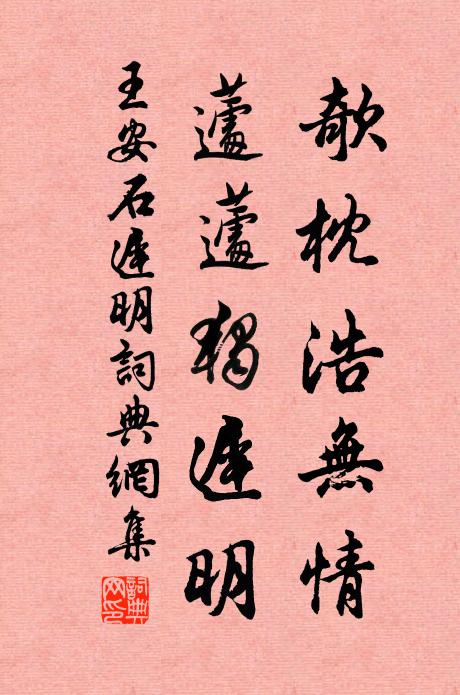 欹枕浩無情
蘧蘧獨遲明
王安石遲明詞典網集
詞典
网印